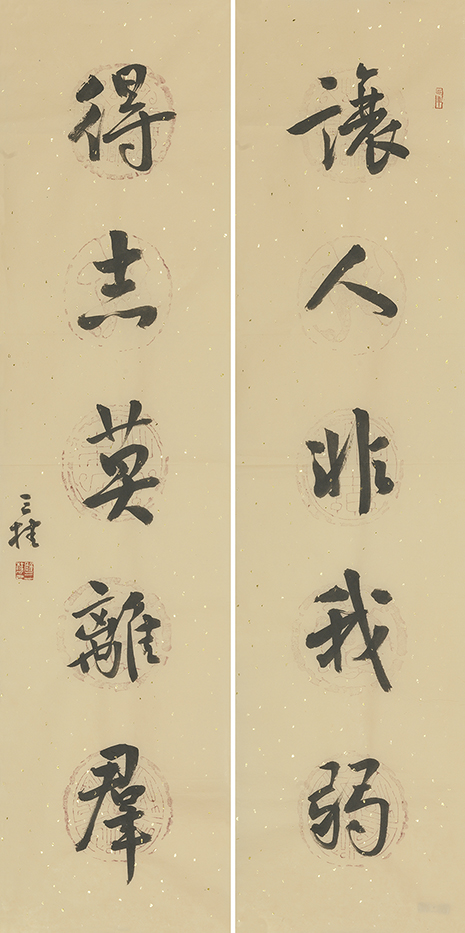 讓人非我弱
得志莫離羣
三桂